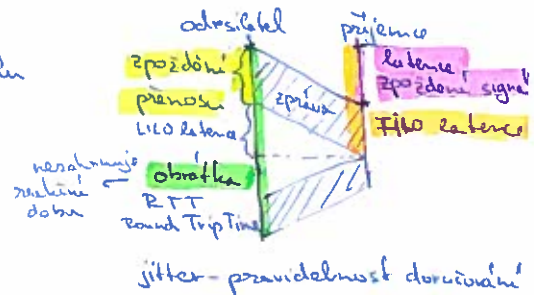 odesilatel
příjemce
zpoždění
přenosu
LILO latence
zpráva
latence
zpoždění signá
FILO latence
nezahrnuje
reakční
dobu
obrátka
RTT
Round Trip Time
jitter - pravidelnost doručování